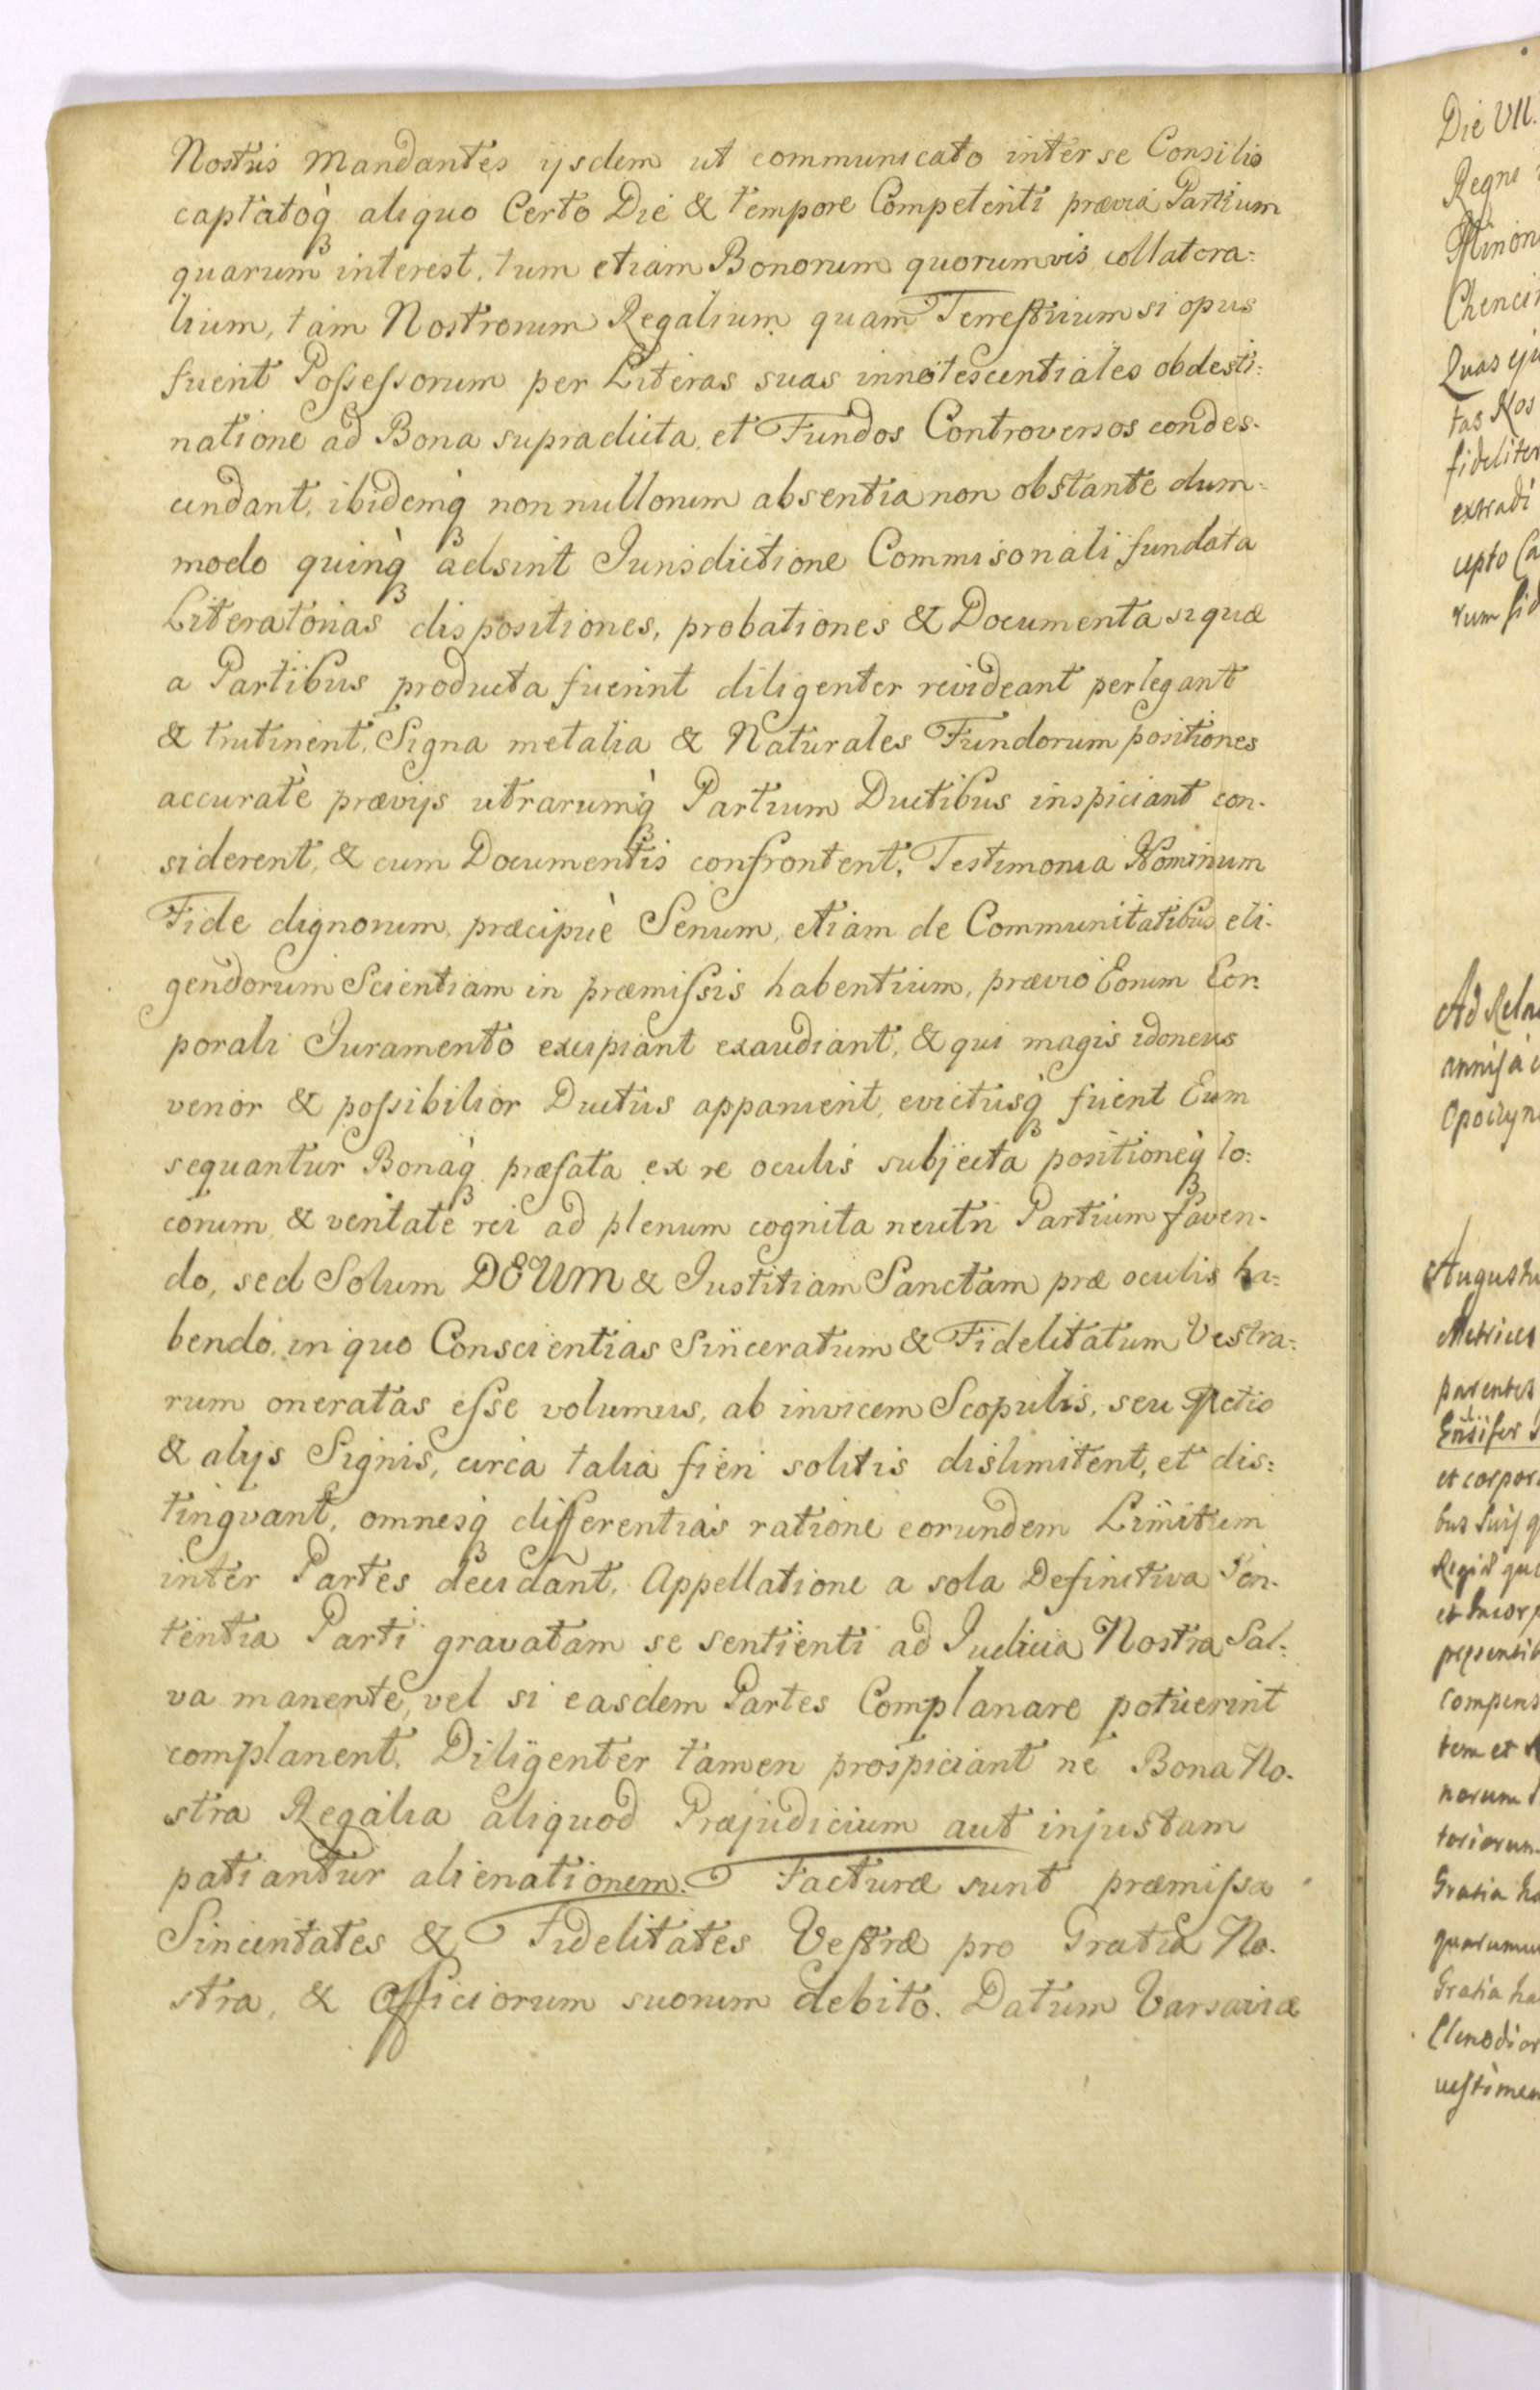 Nostris Mandantes ijsdem ut communicato inter se Consilio
captatoq̀ aliquo Certo Die & tempore Competenti prævia Partium
quarum interest, tum etiam Bonorum quorumvis collatera:
lium, tam Nostrorum Regalium quam Terreſtrium si opus
fuerit Poſseſsorum per Literas suas innotescentiales obdesti:
natione ad Bona supradicta, et Fundos Controversos condes.
cendant, ibidemq̀ non nullorum absentia non obstante dum:
modo quinq̀ adsint Jurisdictione Commisoriali fundata
Literatorias dispositiones, probationes & Documenta si quæ
a Partibus producta fuerint diligenter revideant perlegant
& trutinent, Signa metalia & Naturales Fundorum positiones
accuratè prævijs utrarumq̀ Partium Ductibus inspiciant con.
siderent, & cum Documentis confrontent, Testimonia Hominum
Fide dignorum, præcipuè Senum, etiam de Communitatibus eli.
gendorum Scientiam in præmiſsis habentium, prævio Eorum Cor.
porali Juramento excipiant exaudiant, & qui magis idoneus
verior & poſsibilior Ductus apparuerit, evictusq̀ fuerit Eum
sequantur Bonaq̀ præfata ex re oculis subjecta positioneq̀ lo:
corum, & veritate rei ad plenum cognita neutri Partium faven.
do, sed Solum DEUM & Justitiam Sanctam præ oculis ha:
bendo, in quo Conscientias Sinceratum & Fidelitatum Vestra:
rum oneratas eſse volumus, ab invicem Scopulis, seu Actio
& alijs Signis, circa talia fieri solitis dislimitent, et dis:
tingvant, omnesq̀ differentias ratione eorundem Limitum
inter Partes decidant, Appellatione a sola Definitiva Sen.
tentia Parti gravatam se sentienti ad Judicia Nostra Sal.
va manente, vel si easdem Partes Complanare potuerint
complanent. Diligenter tamen prospiciant ne Bona No.
stra Regalia aliquod Præjudicium aut injustam
patiantur alienationem. Facturæ sunt præmiſsa
Sinceritates & Fidelitates Veſtræ pro Gratia No.
stra, & Officiorum suorum debito. Datum Varsaviæ
Die VII.
Regni
Chenci
Quas
tas Nos
fideliter
extradi
cepto Ca
rum
Ad Rela
Augustu
Metrices
parentes
Ensifer
et corpor
bus Suis
Regis
et Incorp
compens
tem et
norum
toriorum
Gratia
quorumu
Gratia ha
Clenodior